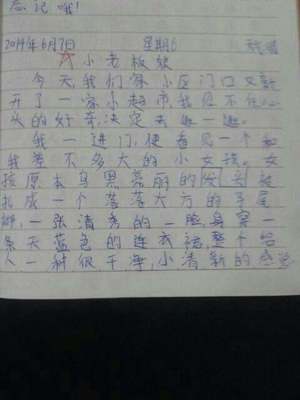 忘记哦!
2014年6月7日 星期6
小老板娘
今天,我们家小区门口又新
开了一家小超市,我忍不住心
头的好奇,决定去逛一逛。
我一进门,便看见一个和
我差不多大的小女孩。女
孩原本乌黑亮丽的头发被
扎成一个落落大方的马尾
辫,一张清秀的脸,身穿一
条天蓝色的连衣裙,整个给
人一种很干净,小清新的感觉